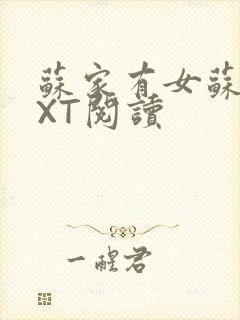 蘇家有女蘇
XT閱讀
一醒君